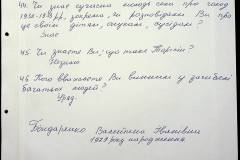 44. Чи знає сучасна молодь села про голод
1932-1933 рр., зокрема, чи розповідали Ви про
це своїм дітям, онукам, сусідам?
Знає
45. Чи знаєте Ви, що таке Торгсін?
Не знаю
46. Кого вважаєте Ви винним у загибелі
багатьох людей?
Уряд.
Бондаренко Валентина Іванівна
1929 року народження